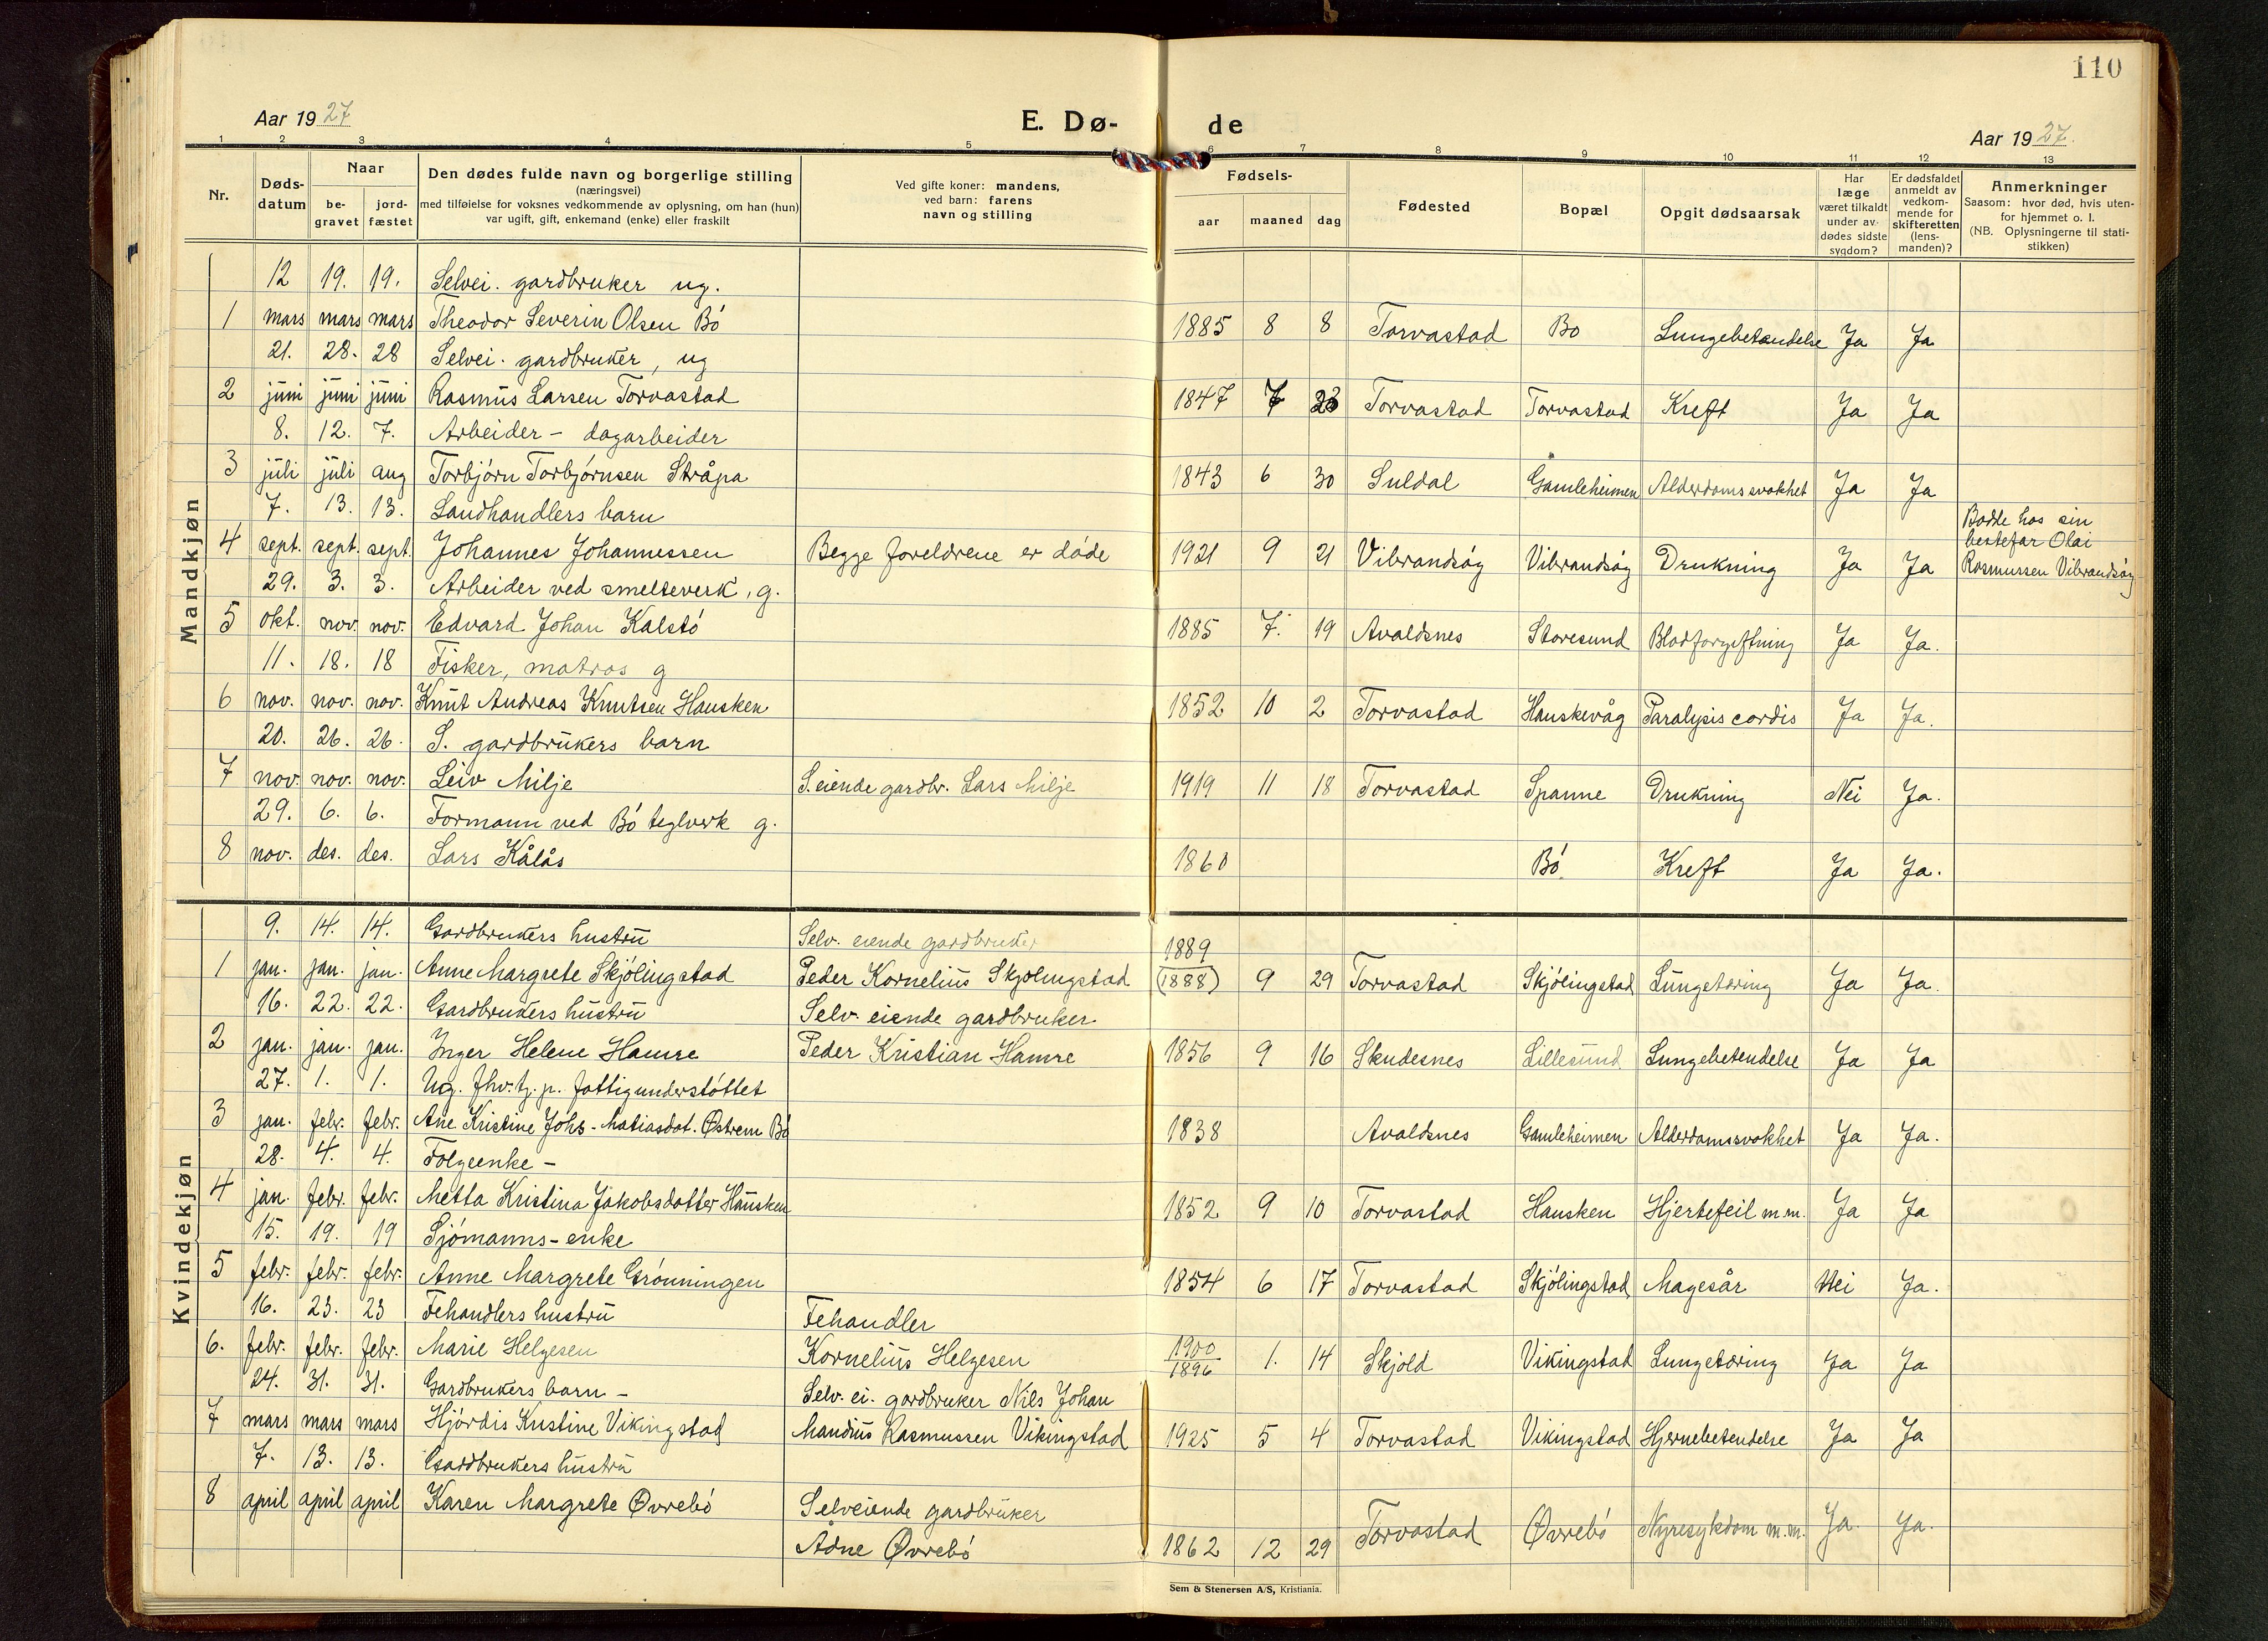 110
Aar 1927
E. Dø-
de
Aar 1927.
1 2 3 4 5 6 7 8 9 10 11 12 13
Nr.
Døds-
datum
Naar
be-
gravet
jord-
fæstet
Den dødes fulde navn og borgerlige stilling
(næringsvei)
med tilføielse for voksnes vedkommende av oplysning, om han (hun)
var ugift, gift, enkemand (enke) eller fraskilt
Ved gifte koner: mandens,
ved barn: farens
navn og stilling
Fødsels-
aar maaned dag
Fødested
Bopæl
Opgit dødsaarsak
Har
læge
været tilkaldt
under av-
dødes sidste
sygdom?
Er dødsfaldet
anmeldt av
vedkom-
mende for
skifteretten
(lens-
manden)?
Anmerkninger
Saasom: hvor død, hvis uten-
for hjemmet o. l.
(NB. Oplysningerne til stati-
stikken)
Mandkjøn
12 19. 19. Selvei. gardbruker ug.
1 mars mars mars Theodor Severin Olsen Bö 1885 8 8 Torvastad Bo Lungebetendelse Ja Ja
21. 28. 28 Selvei. gardbruker, ug
2 juni juni juni Rasmus Larsen Torvastad 1847 7 23 Torvastad Torvastad Kreft Ja Ja
8. 12. 7. Arbeider - dagarbeider
3 juli juli aug Torbjörn Torbjörnsen Stråpa 1843 6 30 Suldal Gamleheimen Alderdomssvakhet Ja Ja
7. 13. 13. Landhandlers barn
4 sept. sept. sept. Johannes Johannessen Begge foreldrene er döde 1921 9 21 Vibrandsöy Vibrandsöy Drukning Ja Ja
Bodde hos sin
bestefar Olai
Rasmussen Vibrandsöy
29. 3. 3. Arbeider ved smelteverk, g.
5 okt. nov. nov. Edvard Johan Kalstö 1885 7. 19 Avaldsnes Storesund Blodforgiftning Ja Ja.
11. 18. 18 Fisker, matros g
6 nov. nov. nov. Knut Andreas Knutsen Hausken 1852 10 2 Torvastad Hauskevåg Paralysis cordis Ja Ja.
20. 26. 26. S. gardbrukers barn
7 nov. nov. nov. Leiv Milje S. eiende gardbr. Lars Milje 1919 11 18 Torvastad Spanne Drukning Nei Ja.
29. 6. 6. Formann ved Bö teglverk g.
8 nov. des. des. Lars Kålås 1860 Bö Kreft Ja Ja.
Kvindekjøn
9. 14. 14. Gardbrukers hustru Selv. eiende gardbruker 1889
1 jan. jan. jan. Anne Margrete Skjölingstad Peder Kornelius Skjölingstad (1888) 9 29 Torvastad Skjölingstad Lungetæring Ja Ja.
16. 22. 22. Gardbrukers hustru Selv. eiende gardbruker
2 jan. jan. jan. Inger Helene Hamre Peder Kristian Hamre 1856 9 16 Skudesnes Lillesund Lungebetendelse Ja Ja
27. 1. 1. Ug. fhv. tj. p. fattigunderstöttet
3 jan. febr. febr. Ane Kristine Johs-Matiasdat. Østrem Bö 1838 Avaldsnes Gamleheimen Alderdomssvakhet Ja Ja.
28. 4. 4. Folgeenke -
4 jan. febr. febr. Metta Kristina Jakobsdatter Hausken 1852 9 10 Torvastad Hausken Hjertefeil m.m. Ja Ja
15. 19. 19 Sjömanns-enke
5 febr. febr. febr. Anne Margrete Grönningen 1854 6 17 Torvastad Skjölingstad Magesår Nei Ja.
16. 23. 23 Fehandlers hustru Fehandler
6. febr. febr. febr. Marie Helgesen Kornelius Helgesen 1900 1896 1. 14 Skjold Vikingstad Lungetæring Ja Ja
24. 31. 31. Gardbrukers barn - Selv. ei. gardbruker Nils Johan
7 mars mars mars Hjördis Kristine Vikingstad Mandius Rasmussen Vikingstad 1925 5 4 Torvastad Vikingstad Hjernebetendelse Ja Ja
7. 13. 13. Gardbrukers hustru
8 april april april Karen Margrete Øvrebö Selveiende gardbruker Torvastad Øvrebö Nyresykdom m.m. Ja Ja.
Ådne Øvrebö 1862 12 29
Sem & Stenersen A/S, Kristiania.